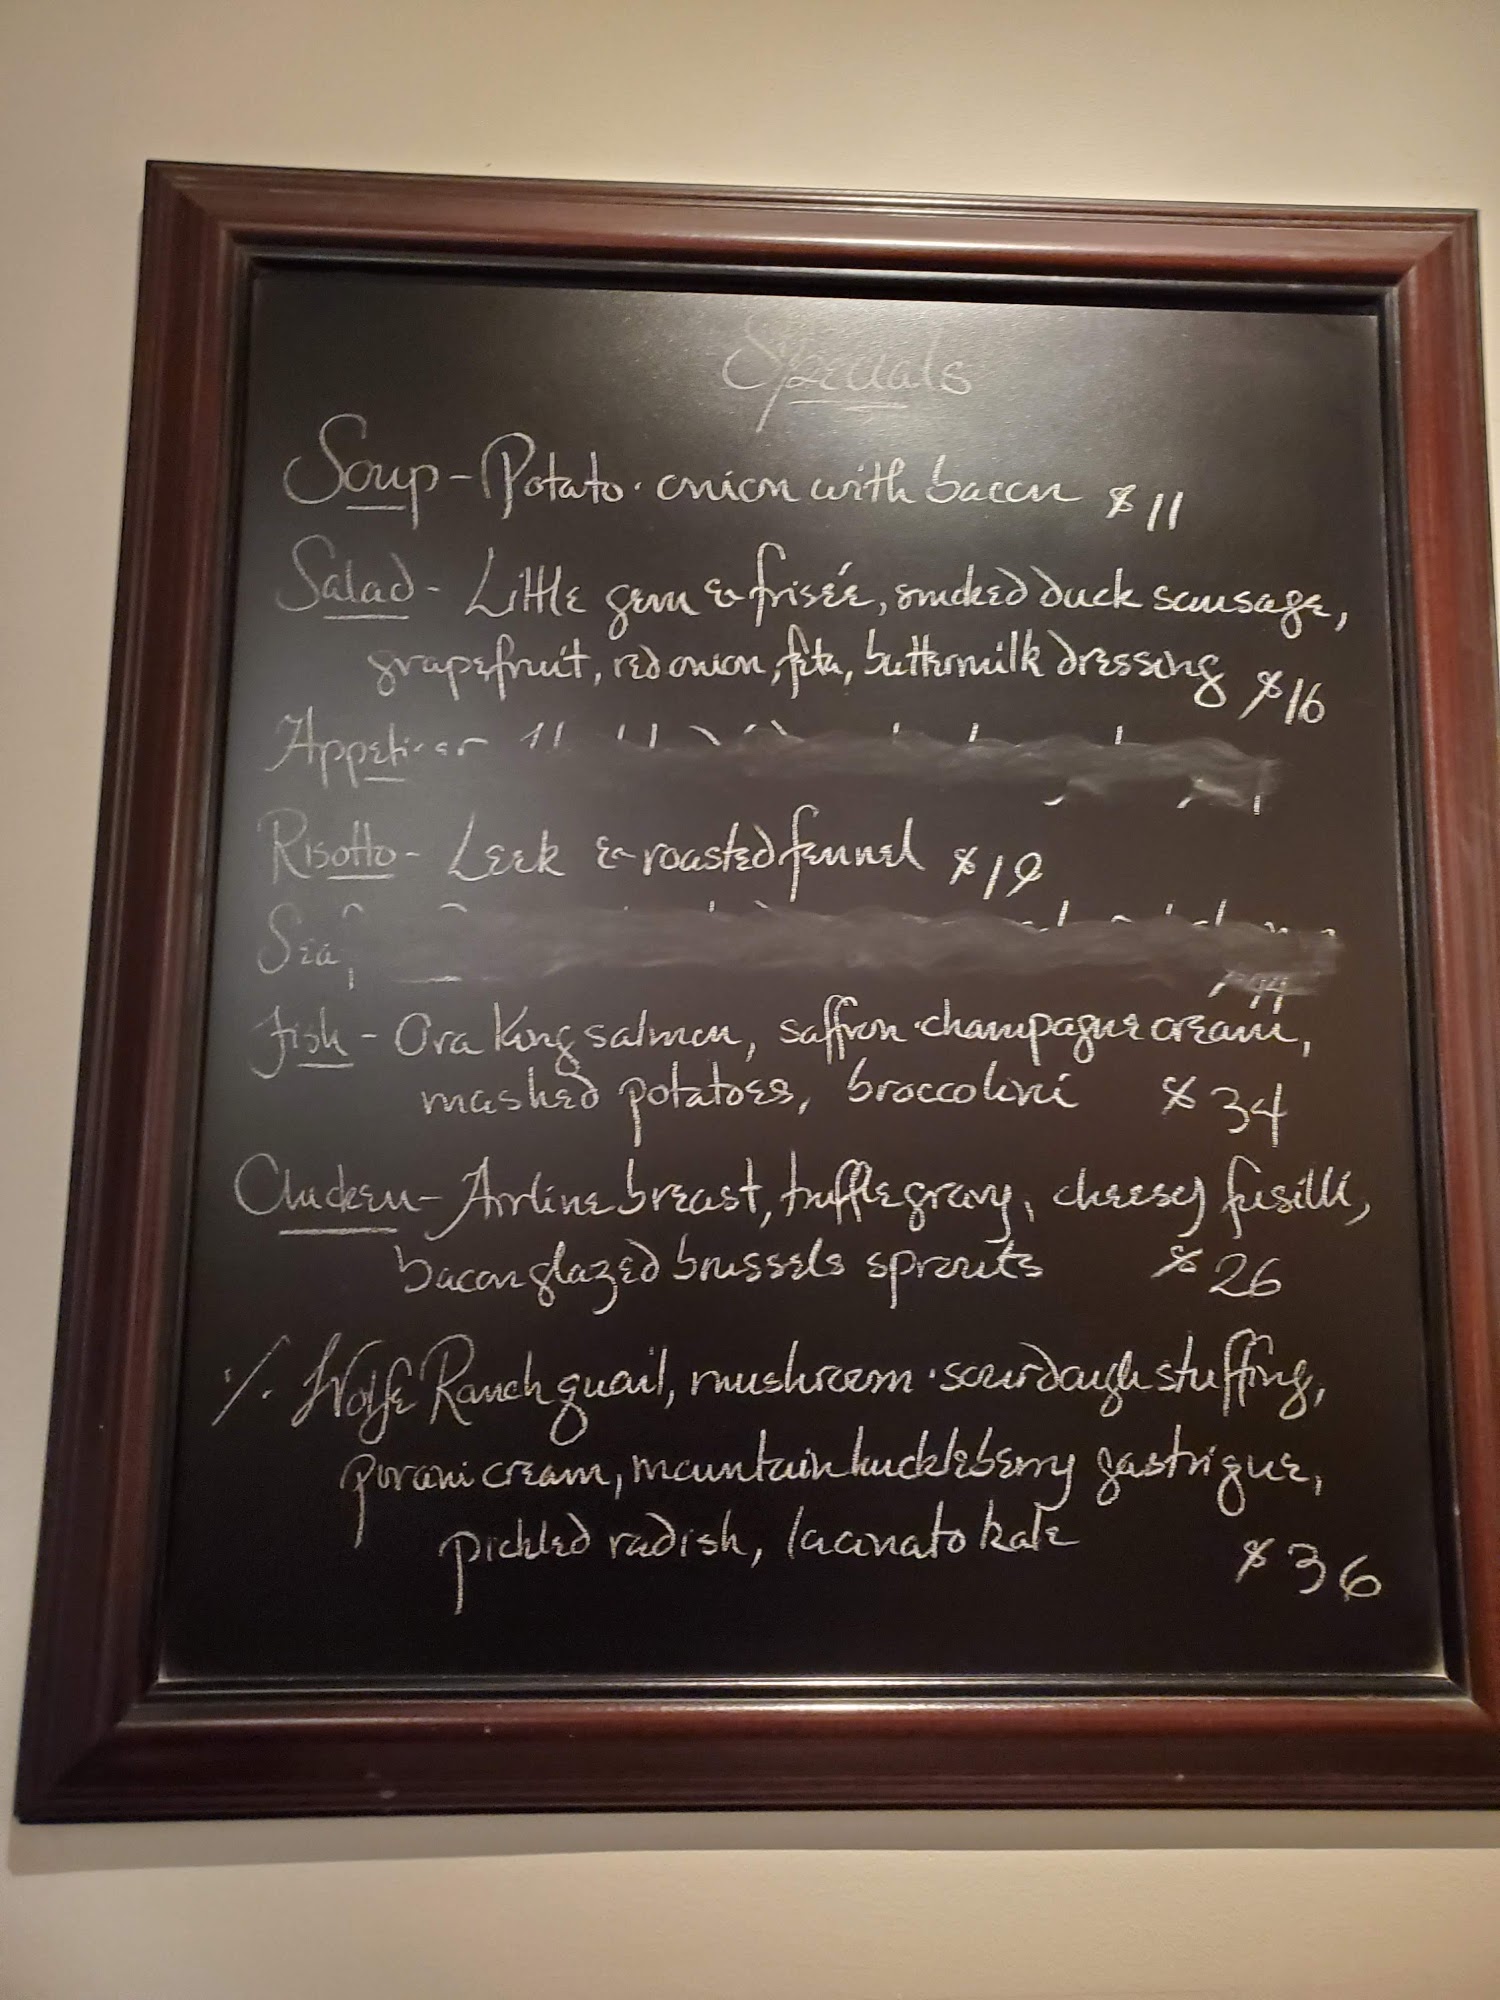 Specials
Soup - Potato · onion with bacon $11
Salad - Little gem & frisée, smoked duck sausage,
grapefruit, red onion, feta, buttermilk dressing $16
Appetizer
Risotto - Leek & roasted fennel $19
Sea
Fish - Ora King salmon, saffron · champagne cream,
mashed potatoes, broccolini $34
Chicken - Airline breast, truffle gravy, cheesy fusilli,
bacon glazed brussels sprouts $26
⁒ Wolfe Ranch quail, mushroom · sourdough stuffing,
porcini cream, mountain huckleberry gastrique,
pickled radish, lacinato kale $36